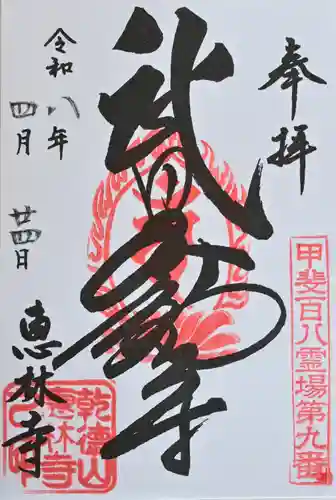 奉拝
甲斐百八霊場第九番
武田不動尊
令和八年
四月 廿四日
恵林寺
乾徳山
恵林寺